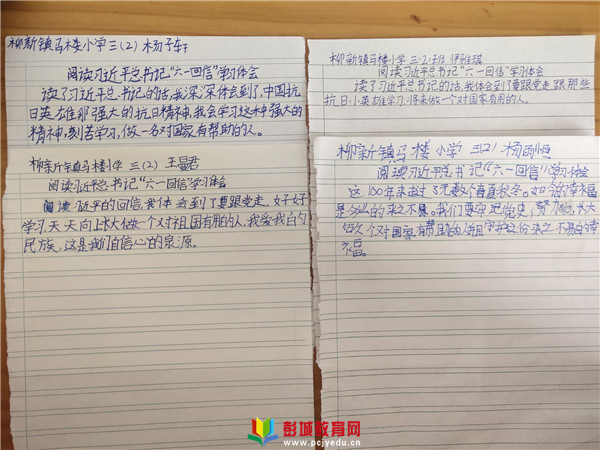 柳新镇马楼小学三(2) 杨子轩
阅读习近平总书记“六一回信”学习体会
读了习近平总书记的话,我深深体会到了,中国抗
日英雄那强大的抗日精神,我会学习这种强大的
精神,刻苦学习,做一名对国家有帮助的人。
柳新镇马楼小学 三(2) 王昱君
阅读习近平总书记“六一回信”学习体会
阅读习近平的回信,我体会到了要跟党走,好好
学习,天天向上,长大做一个对祖国有用的人,我爱我的
民族,这是我们自信心的泉源。
柳新镇马楼小学 三(2)班 伊 琪
阅读习近平总书记“六一回信”学习体会
读了习近平总书记的话,我体会到要跟党走跟那些
抗日小英雄学习,将来做一个对国家有用的人。
柳新镇马楼小学 三(2) 杨雨恒
阅读习近平总书记“六一回信”学习体会
这100年来走过 多个春夏秋冬。如今的幸福
是 的来之不易。我们要牢记党史,努力 ,长大
做个对国家有帮助的人 守护这份来之不易的幸
福。
彭城教育网
www.pcjyedu.cn